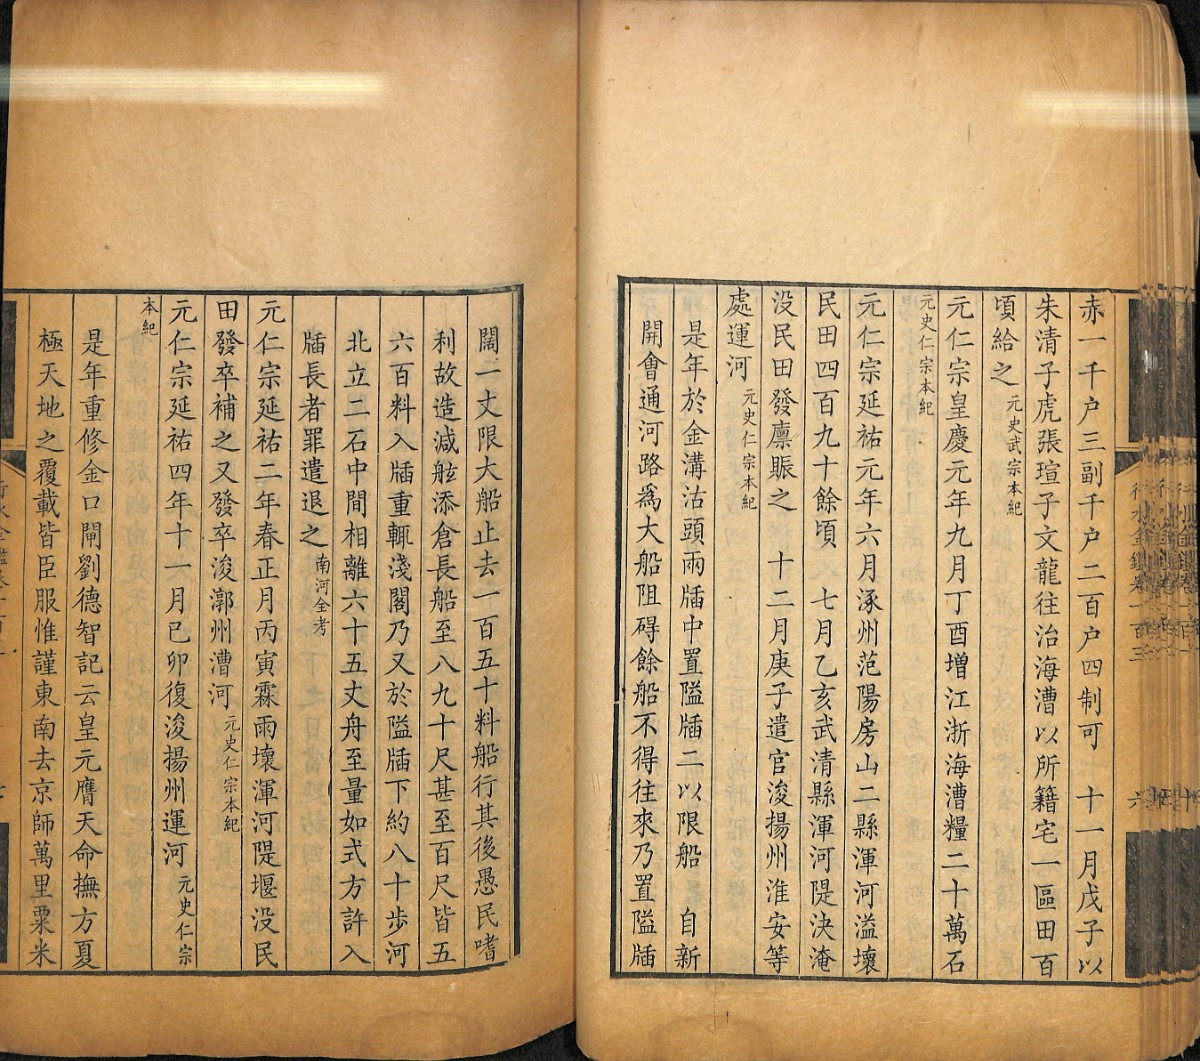 赤一千户三副千户二百户四制可　十一月戊子以
朱清子虎張瑄子文龍往治海漕以所籍宅一區田百
頃給之元史武宗本紀
元仁宗皇慶元年九月丁酉增江浙海漕糧二十萬石
元史仁宗本紀
元仁宗延祐元年六月涿州范陽房山二縣渾河溢壞
民田四百九十餘頃　七月乙亥武清縣渾河隄決淹
没民田發廪賑之　十二月庚子遣官浚揚州淮安等
處運河元史仁宗本紀
是年於金溝沽頭兩牐中置隘牐二以限船　自新
開會通河路爲大船阻碍餘船不得往來乃置隘牐
闊一丈限大船止去一百五十料船行其後愚民嗜
利故造減舷添倉長船至八九十尺甚至百尺皆五
六百料入牐重輒淺閣乃又於隘牐下約八十步河
北立二石中間相離六十五丈舟至量如式方許入
牐長者罪遣退之南河全考
元仁宗延祐二年春正月丙寅霖雨壞渾河隄堰没民
田發卒補之又發卒浚漷州漕河元史仁宗本紀
元仁宗延祐四年十一月已卯復浚揚州運河元史仁宗
本紀
是年重修金口閘劉德智記云皇元膺天命撫方夏
極天地之覆載皆臣服惟謹東南去京師萬里粟米